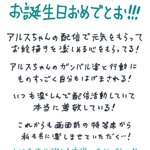 お誕生日おめでとお!!!
アルスちゃんの配信で元気をもらって
お絵描きを楽しめる心をもらってる!
アルスちゃんのガンバル姿と行動に
ものすごく自分もはげまされる!
いつも楽しんで配信活動していて
本当に尊敬している!
これからも画面前の特等席から
私も共に楽しませていただく〜!